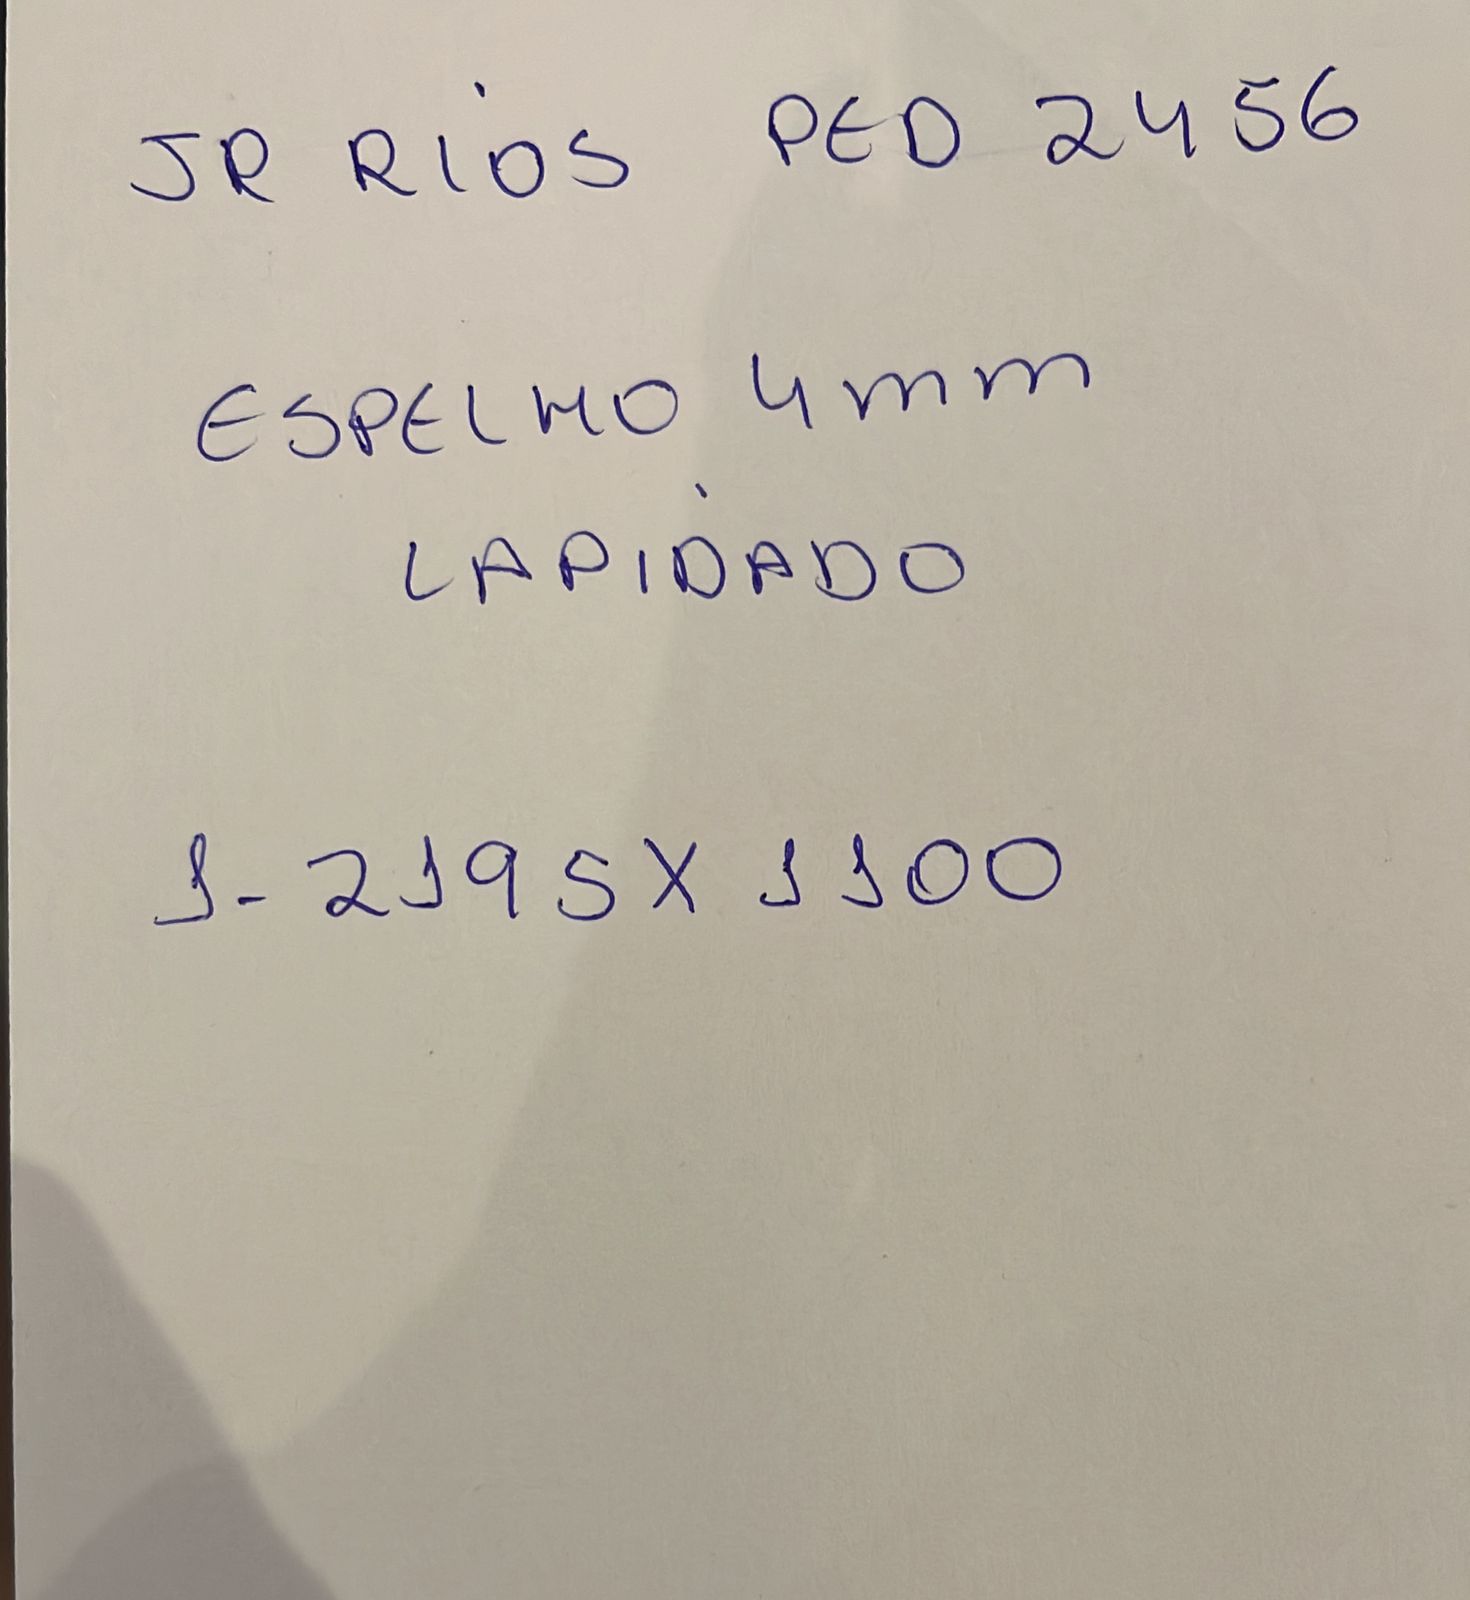 JR RIOS PED 2456
ESPELHO 4mm
LAPIDADO
1-2195X1100